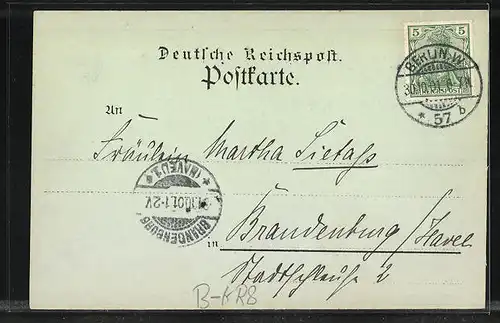 5 5
BERLIN.W.
* 57 b
Deutsche Reichspost.
Postkarte.
An
Fräulein Martha Sietass
BRANDENBURG
* (HAVEL) 1. *
.10.01.1-2V.
in Brandenburg/Havel
Stadtschleuse 2
B-KR8